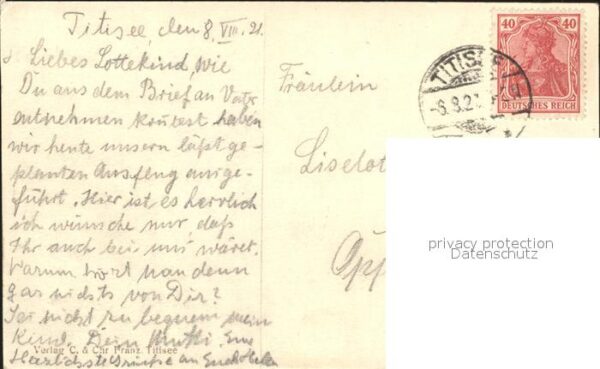 Titisee, den 8. VIII. 21.
Liebes Lottekind, wie
Du aus dem Brief an
entnehmen konntest haben
wir heute unsern läßt ge-
planten Ausflug ausge-
führt. Hier ist es herrlich
ich wünsche nur, daß
Ihr auch bei uns wäret.
Warum hört man denn
gar nichts von Dir?
Sei nicht zu bequem mein
Kind. Dein Mutti.
Verlag C. & Chr Franz, Titisee
Herzlichste Grüsse an
Fräulein
Liselot
Opp
TITISEE
-8.8.21
40 40
DEUTSCHES REICH
privacy protection
Datenschutz